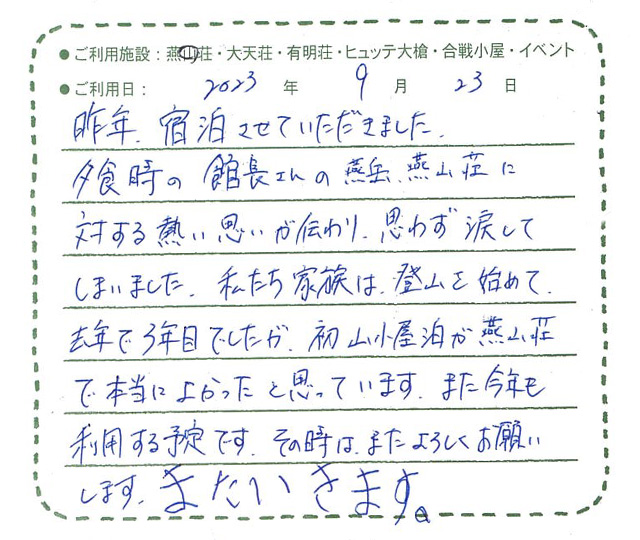 ● ご利用施設：燕山荘・大天荘・有明荘・ヒュッテ大槍・合戦小屋・イベント
● ご利用日： 2023 年 9 月 23 日
昨年、宿泊させていただきました。
夕食時の 館長さんの燕岳、燕山荘に
対する熱い思いが伝わり、思わず涙して
しまいました。私たち家族は、登山を始めて、
去年で3年目でしたが、初山小屋泊が燕山荘
で本当によかったと思っています。また今年も
利用する予定です。その時は、またよろしくお願い
します。またいきます。